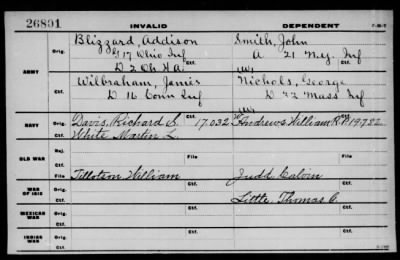 26891 INVALID DEPENDENT
Blizzard, Addison Smith, John
Orig. G 17 Ohio Inf A 21 N.Y. Inf
D 2 Oh H A
ARMY Ctf. Ctf.
Wilbraham, James Nichols, George
Orig. D 16 Conn Inf D 32 Mass Inf
Ctf. Ctf.
NAVY Orig. Davis, Richard S. Ctf. 17.032 Andrews William R. 19722
White Martin L.
Ctf. Ctf.
OLD WAR Rej.
Ctf. File File
WAR OF 1812 Orig. Tillotson, William Judd Calvin
Ctf. Little Thomas
MEXICAN WAR Orig.
Ctf.
INDIAN WAR Orig.
Ctf.